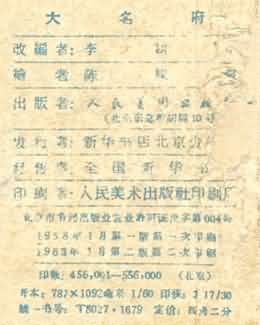 大名府
改編者：李
繪者：陳
出版者：人民美術出版社
（北京 胡同10号）
发行者：新华书店北京发行
经售者：全国新华书
印刷者：人民美术出版社印刷厂
北京市书刊出版业营业许可证出字第004号
1958年1月第一版第一次印刷
1963年1月第二版第二次印刷
印数：456,001—556,000 （北京）
开本：787×1092毫米 1/60 印张：3 17/30
統一书号：T8027·1679 定价：四角二分